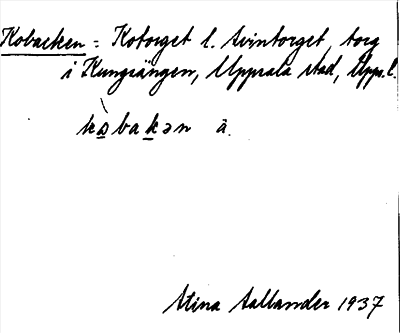 Kobacken = Kotorget l. Svintorget, torg
i Kungsängen, Uppsala stad, Upps.l.
kòbakən ä.
Stina Sallander 1937